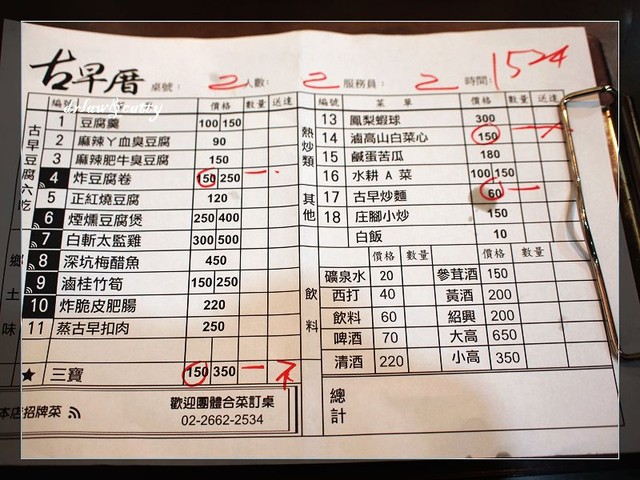 古早厝 桌號: 2 人數: 2 服務員: 2 時間: 1524
anlaw&cutty
編號 價格 數量 送達
古早豆腐六吃
1 豆腐羹 100 150
2 麻辣丫血臭豆腐 90
3 麻辣肥牛臭豆腐 150
4 炸豆腐卷 150 250 一
5 正紅燒豆腐 120
6 煙燻豆腐煲 250 400
鄉土味
7 白斬太監雞 300 500
8 深坑梅醋魚 450
9 滷桂竹筍 150 250
10 炸脆皮肥腸 220
11 蒸古早扣肉 250
★ 三寶 150 350 一 不
本店招牌菜
歡迎團體合菜訂桌
02-2662-2534
編號 菜單 價格 數量 送達
熱炒類
13 鳳梨蝦球 300
14 滷高山白菜心 150 一
15 鹹蛋苦瓜 180
16 水耕 A 菜 100 150
其他
17 古早炒麵 60 一
18 庄腳小炒 150
白飯 10
飲料
價格 數量 價格 數量
礦泉水 20 參茸酒 150
西打 40 黃酒 200
飲料 60 紹興 200
啤酒 70 大高 650
清酒 220 小高 350
總計